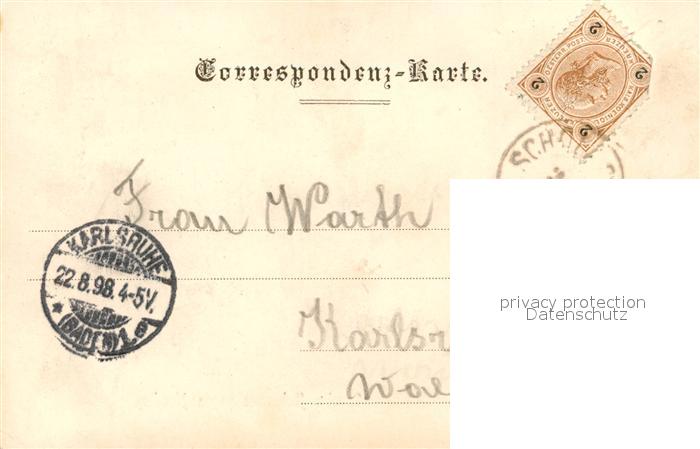 Correspondenz-Karte.
2 2 2 2
SCH
Frau Warth
KARLSRUHE
22.8.98.4-5V.
(BADEN) 1.
Karlsr
privacy protection
Datenschutz